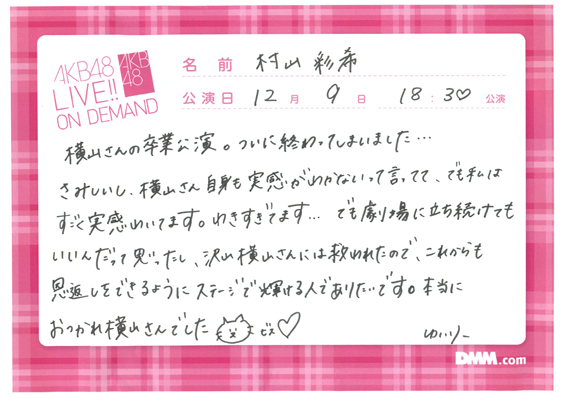 AKB48
LIVE!!
ON DEMAND
AKB
48
名前 村山彩希
公演日 12月9日 18:30公演
横山さんの卒業公演。ついに終わってしまいました…
さみしいし、横山さん自身も実感がわかないって言ってて、でも私は
すごく実感わいてます。わきすぎてます… でも劇場に立ち続けても
いいんだって思ったし、沢山横山さんには救われたので、これからも
恩返しをできるようにステージで輝ける人でありたいです。本当に
おつかれ横山さんでした ビス♡
ゆいりー
DMM.com